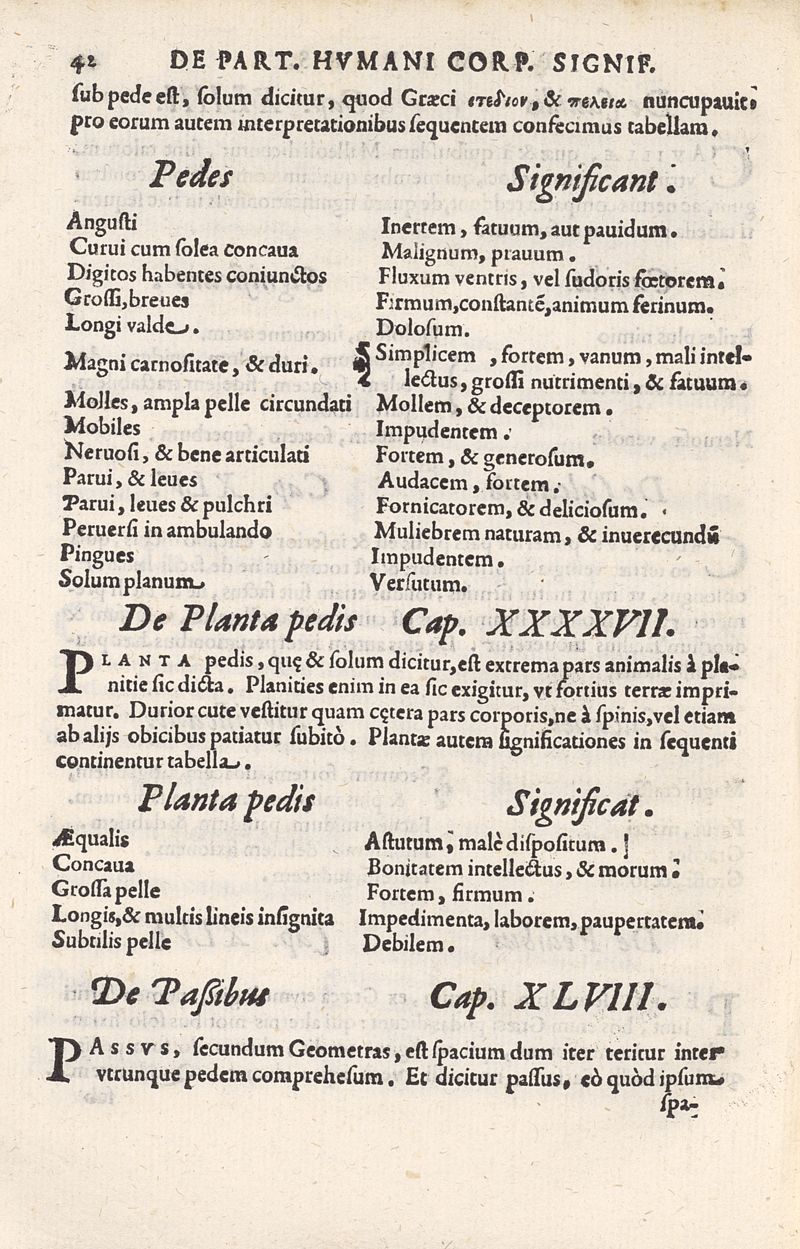 42 DE PART. HVMANI CORP. SIGNIF.
ſub pede eſt, ſolum dicitur, quod Græci ςτεδιον, & πελεια nuncupauit:
pro eorum autem interpretationibus ſequentem confecimus tabellam.
Pedes Significant.
Anguſti Inertem, fatuum, aut pauidum.
Curui cum ſolea concaua Malignum, prauum.
Digitos habentes coniunctos Fluxum ventris, vel ſudoris fœtorem.
Groſſi, breues Firmum, conſtantē, animum ferinum.
Longi valde. Doloſum.
Magni carnoſitate, & duri. Simplicem, fortem, vanum, mali intel-
lectus, groſſi nutrimenti, & fatuum.
Molles, ampla pelle circundati Mollem, & deceptorem.
Mobiles Impudentem.
Neruoſi, & bene articulati Fortem, & generoſum.
Parui, & leues Audacem, fortem.
Parui, leues & pulchri Fornicatorem, & delicioſum.
Peruerſi in ambulando Muliebrem naturam, & inuerecundū
Pingues Impudentem.
Solum planum Verſutum.
De Planta pedis Cap. XXXXVII.
PLANTA pedis, quę & ſolum dicitur, eſt extrema pars animalis à pla-
nitie ſic dicta. Planities enim in ea ſic exigitur, vt fortius terræ impri-
matur. Durior cute veſtitur quam cętera pars corporis, ne à ſpinis, vel etiam
ab alijs obicibus patiatur ſubitò. Plantæ autem ſignificationes in ſequenti
continentur tabella.
Planta pedis Significat.
Æqualis Aſtutum, malè diſpoſitum.
Concaua Bonitatem intellectus, & morum:
Groſſa pelle Fortem, firmum.
Longis, & multis lineis inſignita Impedimenta, laborem, paupertatem.
Subtilis pelle Debilem.
De Paſſibus Cap. XLVIII.
PASSVS, ſecundum Geometras, eſt ſpacium dum iter teritur inter
vtrunque pedem compreheſum. Et dicitur paſſus, eò quòd ipſum
ſpa-